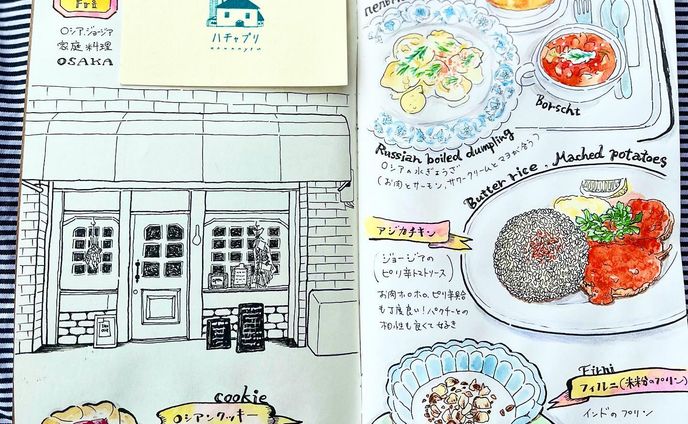 Fri
ロシア、ジョージア
家庭料理
OSAKA
ハチャプリ
cookie
ロシアンクッキー
Borscht
Russian boiled dumpling
ロシアの水ぎょうざ
(お肉とサーモン、サワークリームとマヨが合う)
Butter rice. Mached potatoes
アジカチキン
ジョージアの
ピリ辛トマトソース
お肉ホロホロ。ピリ辛具合
も丁度良い!パクチーとの
相性も良くて好き
Firni
フィルニ(米粉のプリン)
インドのプリン